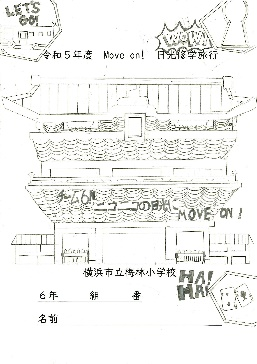 LET'S
GO!
令和5年度 Move on! 日光修学旅行
チーム6年
ニコニコの日光に
MOVE ON!
横浜市立梅林小学校
HA!
HA!
6年 組 番
名前